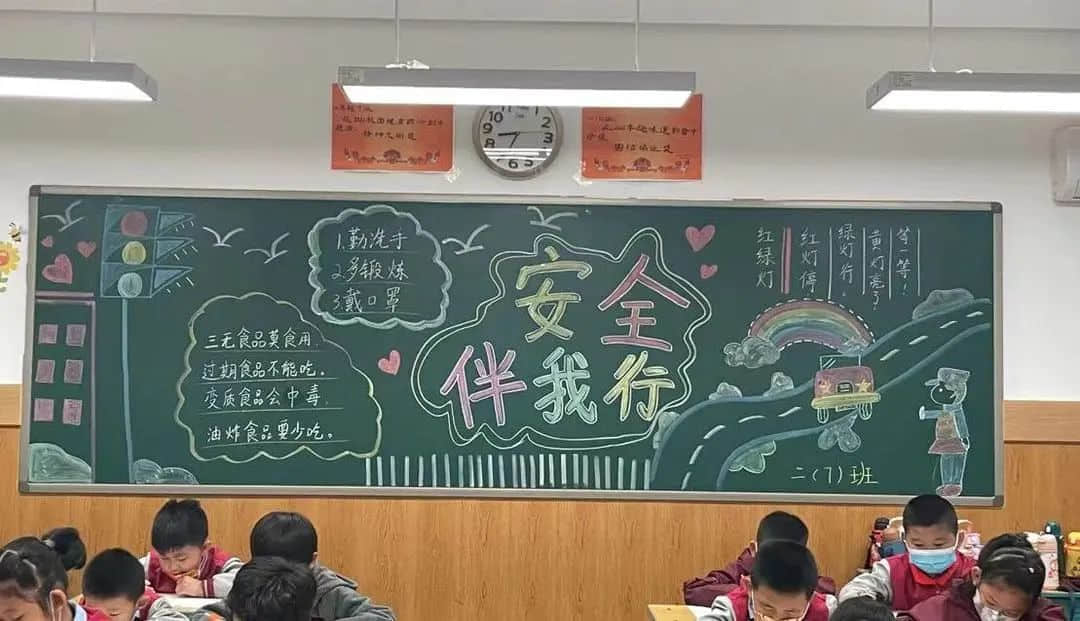 1.勤洗手
2.多锻炼
3.戴口罩
三无食品莫食用.
过期食品不能吃.
变质食品会中毒.
油炸食品要少吃。
安全
伴我行
红绿灯
红灯停
绿灯行。
黄灯亮了
等一等!
二(7)班